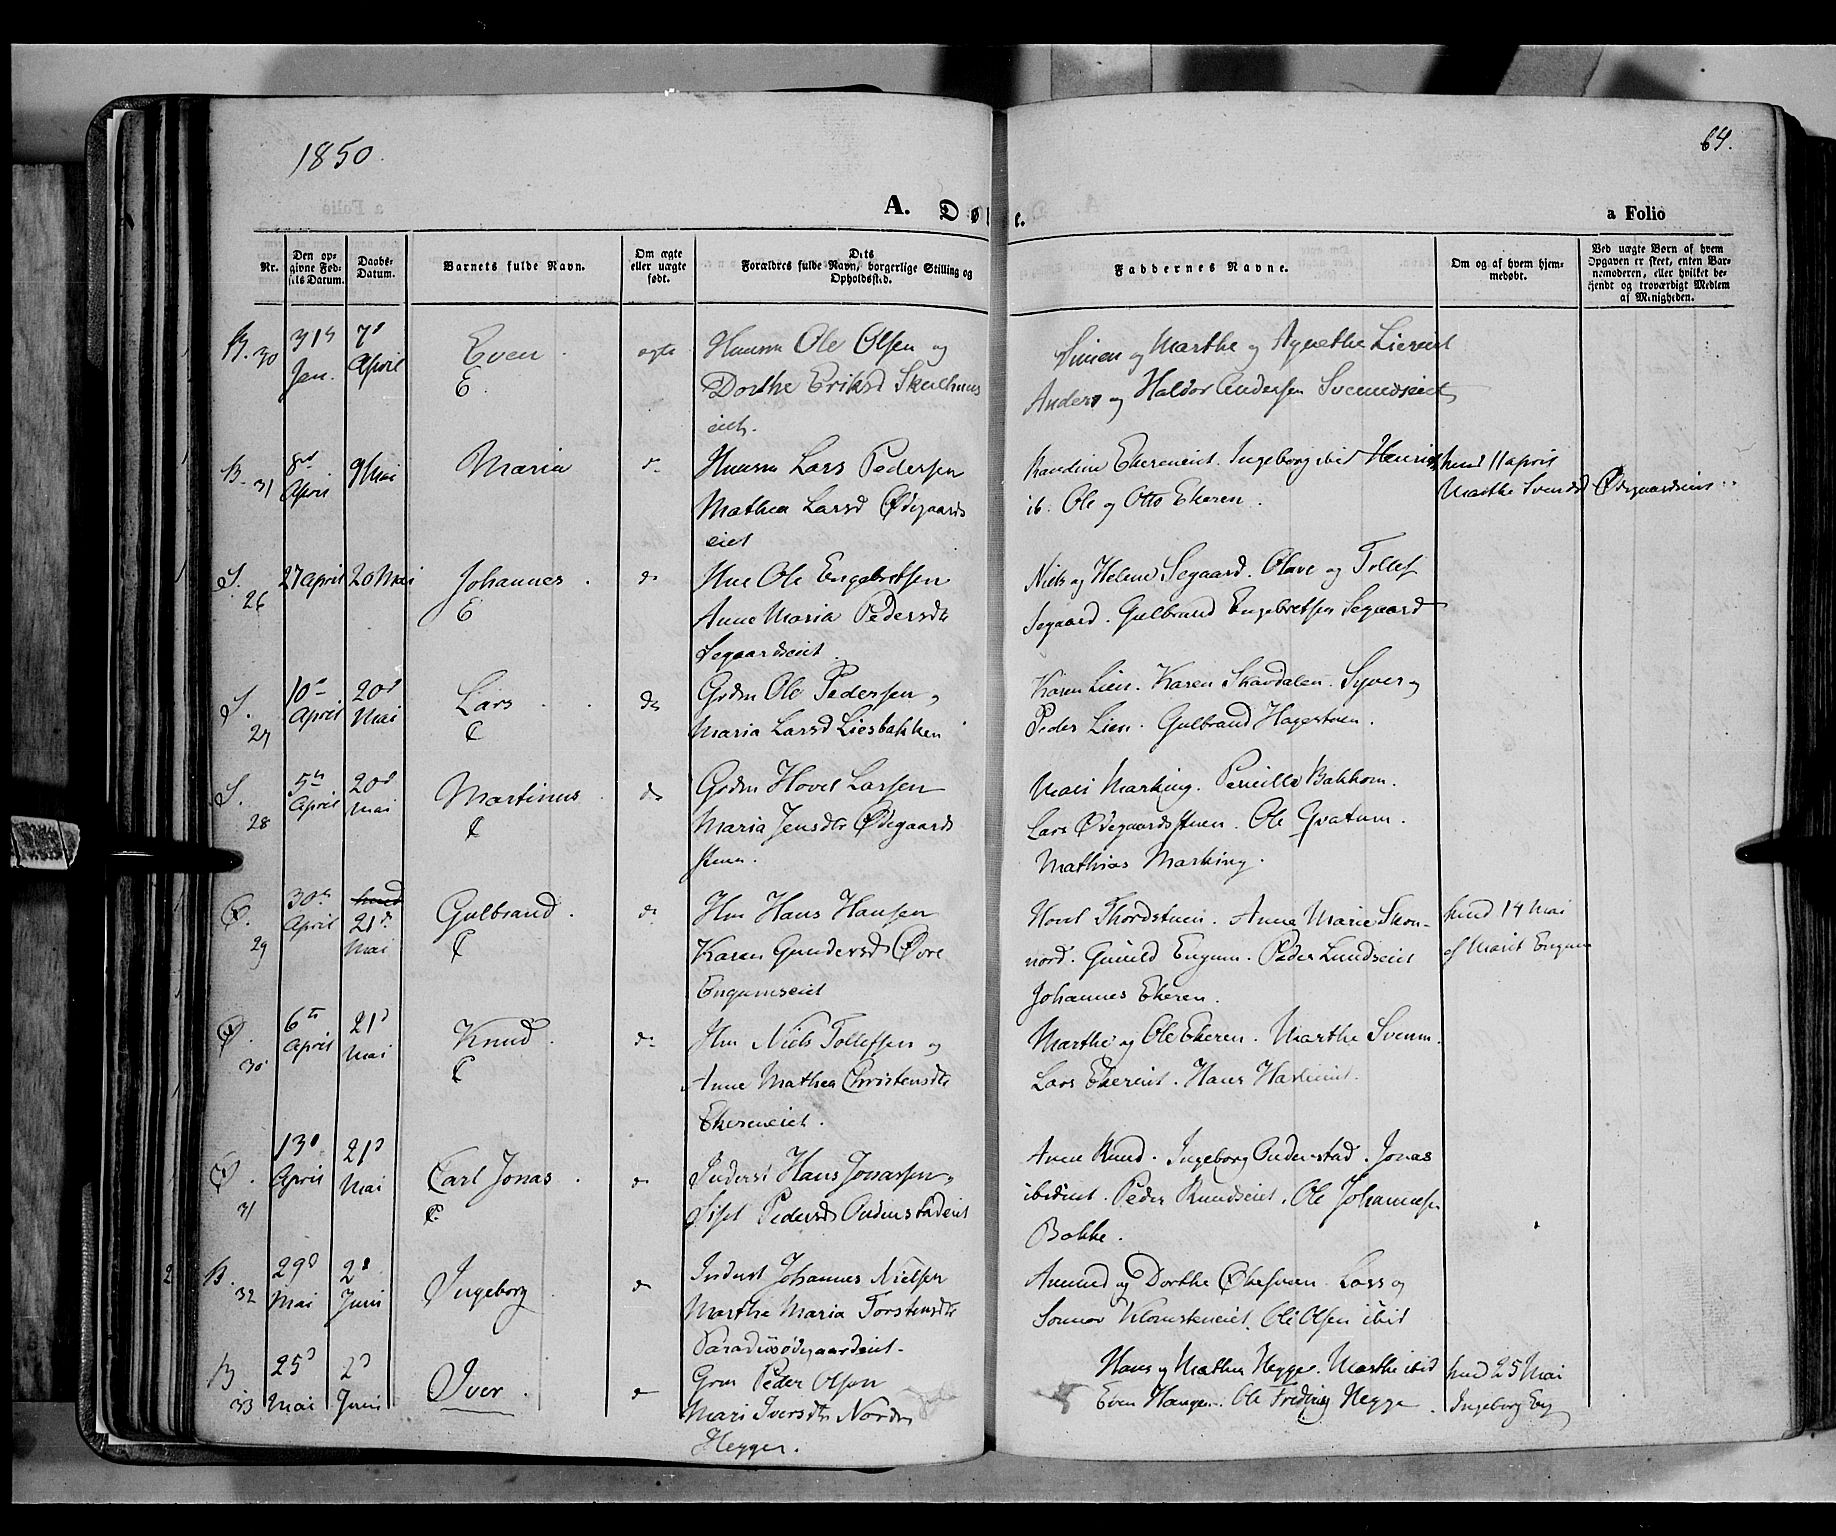 1850.
64.
A. Døbte.
a Folio
Nr.
Den opgivne Fødsels Datum.
Daabs-Datum.
Barnets fulde Navn.
Om ægte eller uægte født.
Dets Forældres fulde Navn, borgerlige Stilling og Opholdssted.
Faddernes Navne.
Om og af hvem hjemmedøbt.
Ved uægte Børn af hvem Opgaven er skeet, enten Barnemoderen, eller hvilket bekjendt og troværdigt Medlem af Menigheden.
B. 30
31 Jan.
7d April
Even
E.
ægte
Huusm Ole Olsen og
Dorthe Eriksd
eiet.
Simen og Marthe og Agnethe
Anders og Haldor Andersen
B. 31
8d April
9 Mai
Maria
do
Huusm Lars Pedersen
Mathea Larsd Ødegaards
eiet
Ekereneiet. Ingeborg ibid
ib. Ole og Otto Ekeren.
hmd 11 april
Marthe Svendsd Ødegaardseiet
S. 26
27 april
20 Mai
Johannes
E
do
Hm Ole Engebretsen
Anne Maria Pedersdtr
Segaardseiet.
Niels og Helene Segaard. Olave og Tollef
Segaard. Gulbrand Engebretsen Segaard
S. 27
10de April
20d Mai
Lars
E
do
Grdm Ole Pedersen,
Maria Larsd Liesbakken
Karen Lien. Karen Skavdalen. Syver og
Peder Lien. Gulbrand Hagestuen.
S. 28
5te April
20d Mai
Martinus
E
do
Grdm Hovel Larsen
Maria Jensdtr Ødegaards
stuen.
Mari Marking. Pernille Bakkom.
Lars Ødegaardsstuen. Ole Qvatum.
Mathias Marking.
Ø. 29
30te April
hmd
21d Mai
Gulbrand
E
do
Hm Hans Hansen
Karen Gundersd Øvre
Engumseiet
Hovel Thordstuen. Anne Marie Skon-
nord. Gunild Engum. Peder Lundseiet
Johannes Ekeren.
hmd 14 Mai
af Marit Engum
Ø. 30
6te April
21d Mai
Knud
E
do
Hm Niels Tollefsen og
Anne Mathea Christensdtr
Ekereneiet.
Marthe og Ole Ekeren. Marthe Svenn.
Lars Ekereneiet. Hans
Ø. 31
13d April
21d Mai
Carl Jonas
E.
do
Inderst Hans Jonassen,
Siset Pedersd Onderstadeiet
Anne Rund. Ingeborg Onderstad. Jonas
ibidnt. Peder Rundseiet. Ole Johannessen
Bakke.
B. 32
29d Mai
2d Juni
Ingeborg
do
Inderst Johannes Nielsen
Marthe Maria Torstensdtr
Paradisødegaardeiet.
Amund og Dorthe Lars og
Klomsteneiet. Ole Olsen ibid
B 33
25d Mai
2d Juni
Iver
do
Grm Peder Olsen
Mari Iversdtr Nordre
Hegge.
Hans og Mathea Hegge. Marthe ibid
Even Hauge. Ole Hegge.
hmd 25 Mai
Ingeborg Eng